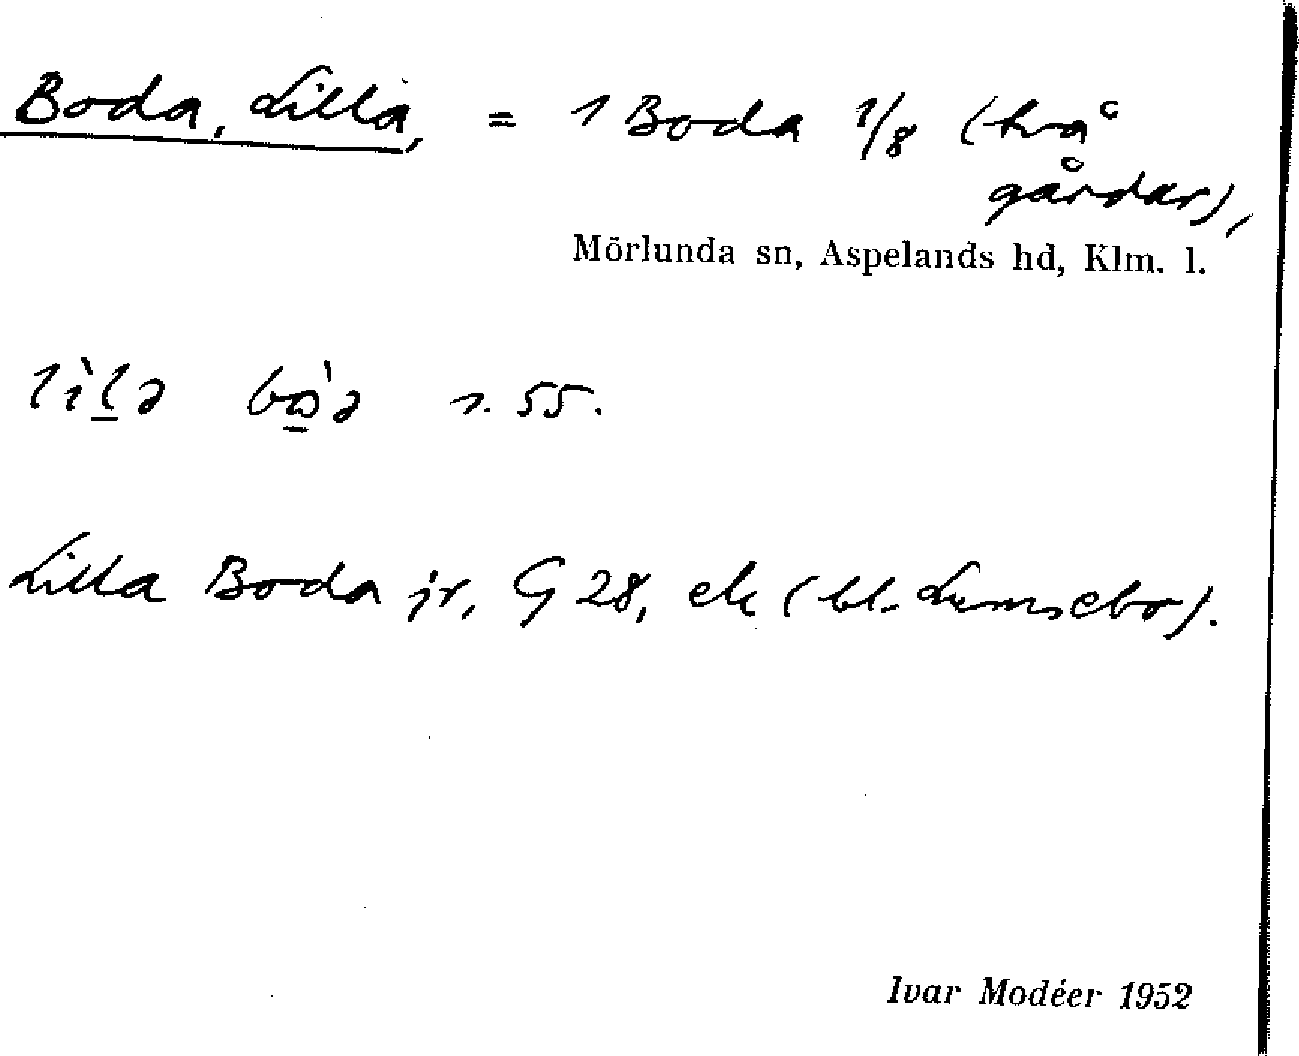 Boda, Lilla, = 1 Boda 1/8 (två
gårdar),
Mörlunda sn, Aspelands hd, Klm. l.
s. 55.
Lilla Boda jr, G 28, ek (bl.
Ivar Modéer 1952